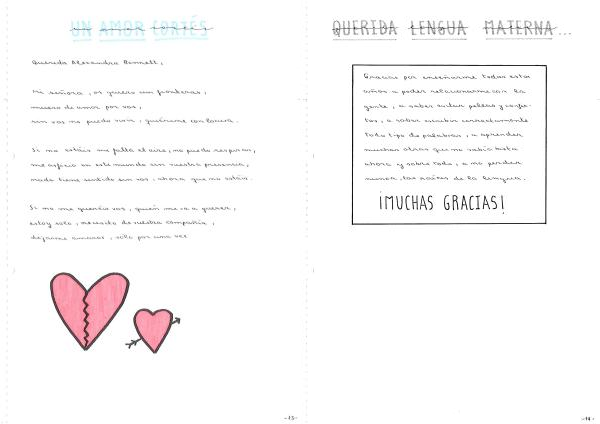 UN AMOR CORTÉS
Querida Alexandra Bennett,
Mi señora, os quiero sin fronteras,
muero de amor por vos,
sin vos no puedo vivir, quiéreme con locura.
Si no estáis me falta el aire, no puedo respirar,
me asfixio en este mundo sin vuestra presencia,
nada tiene sentido sin vos, ahora que no estáis.
Si no me queréis vos, quién me va a querer,
estoy solo, necesito de vuestra compañía,
dejarme amaros, sólo por una vez
-13-
QUERIDA LENGUA MATERNA...
Gracias por enseñarme todos estos
años a poder relacionarme con la
gente, a saber evitar peleas y conflic-
tos, a saber escribir correctamente
todo tipo de palabras, a aprender
muchas otras que no sabía hasta
ahora y sobre todo, a no perder
nunca, las raíces de la lengua.
¡MUCHAS GRACIAS!
-14-